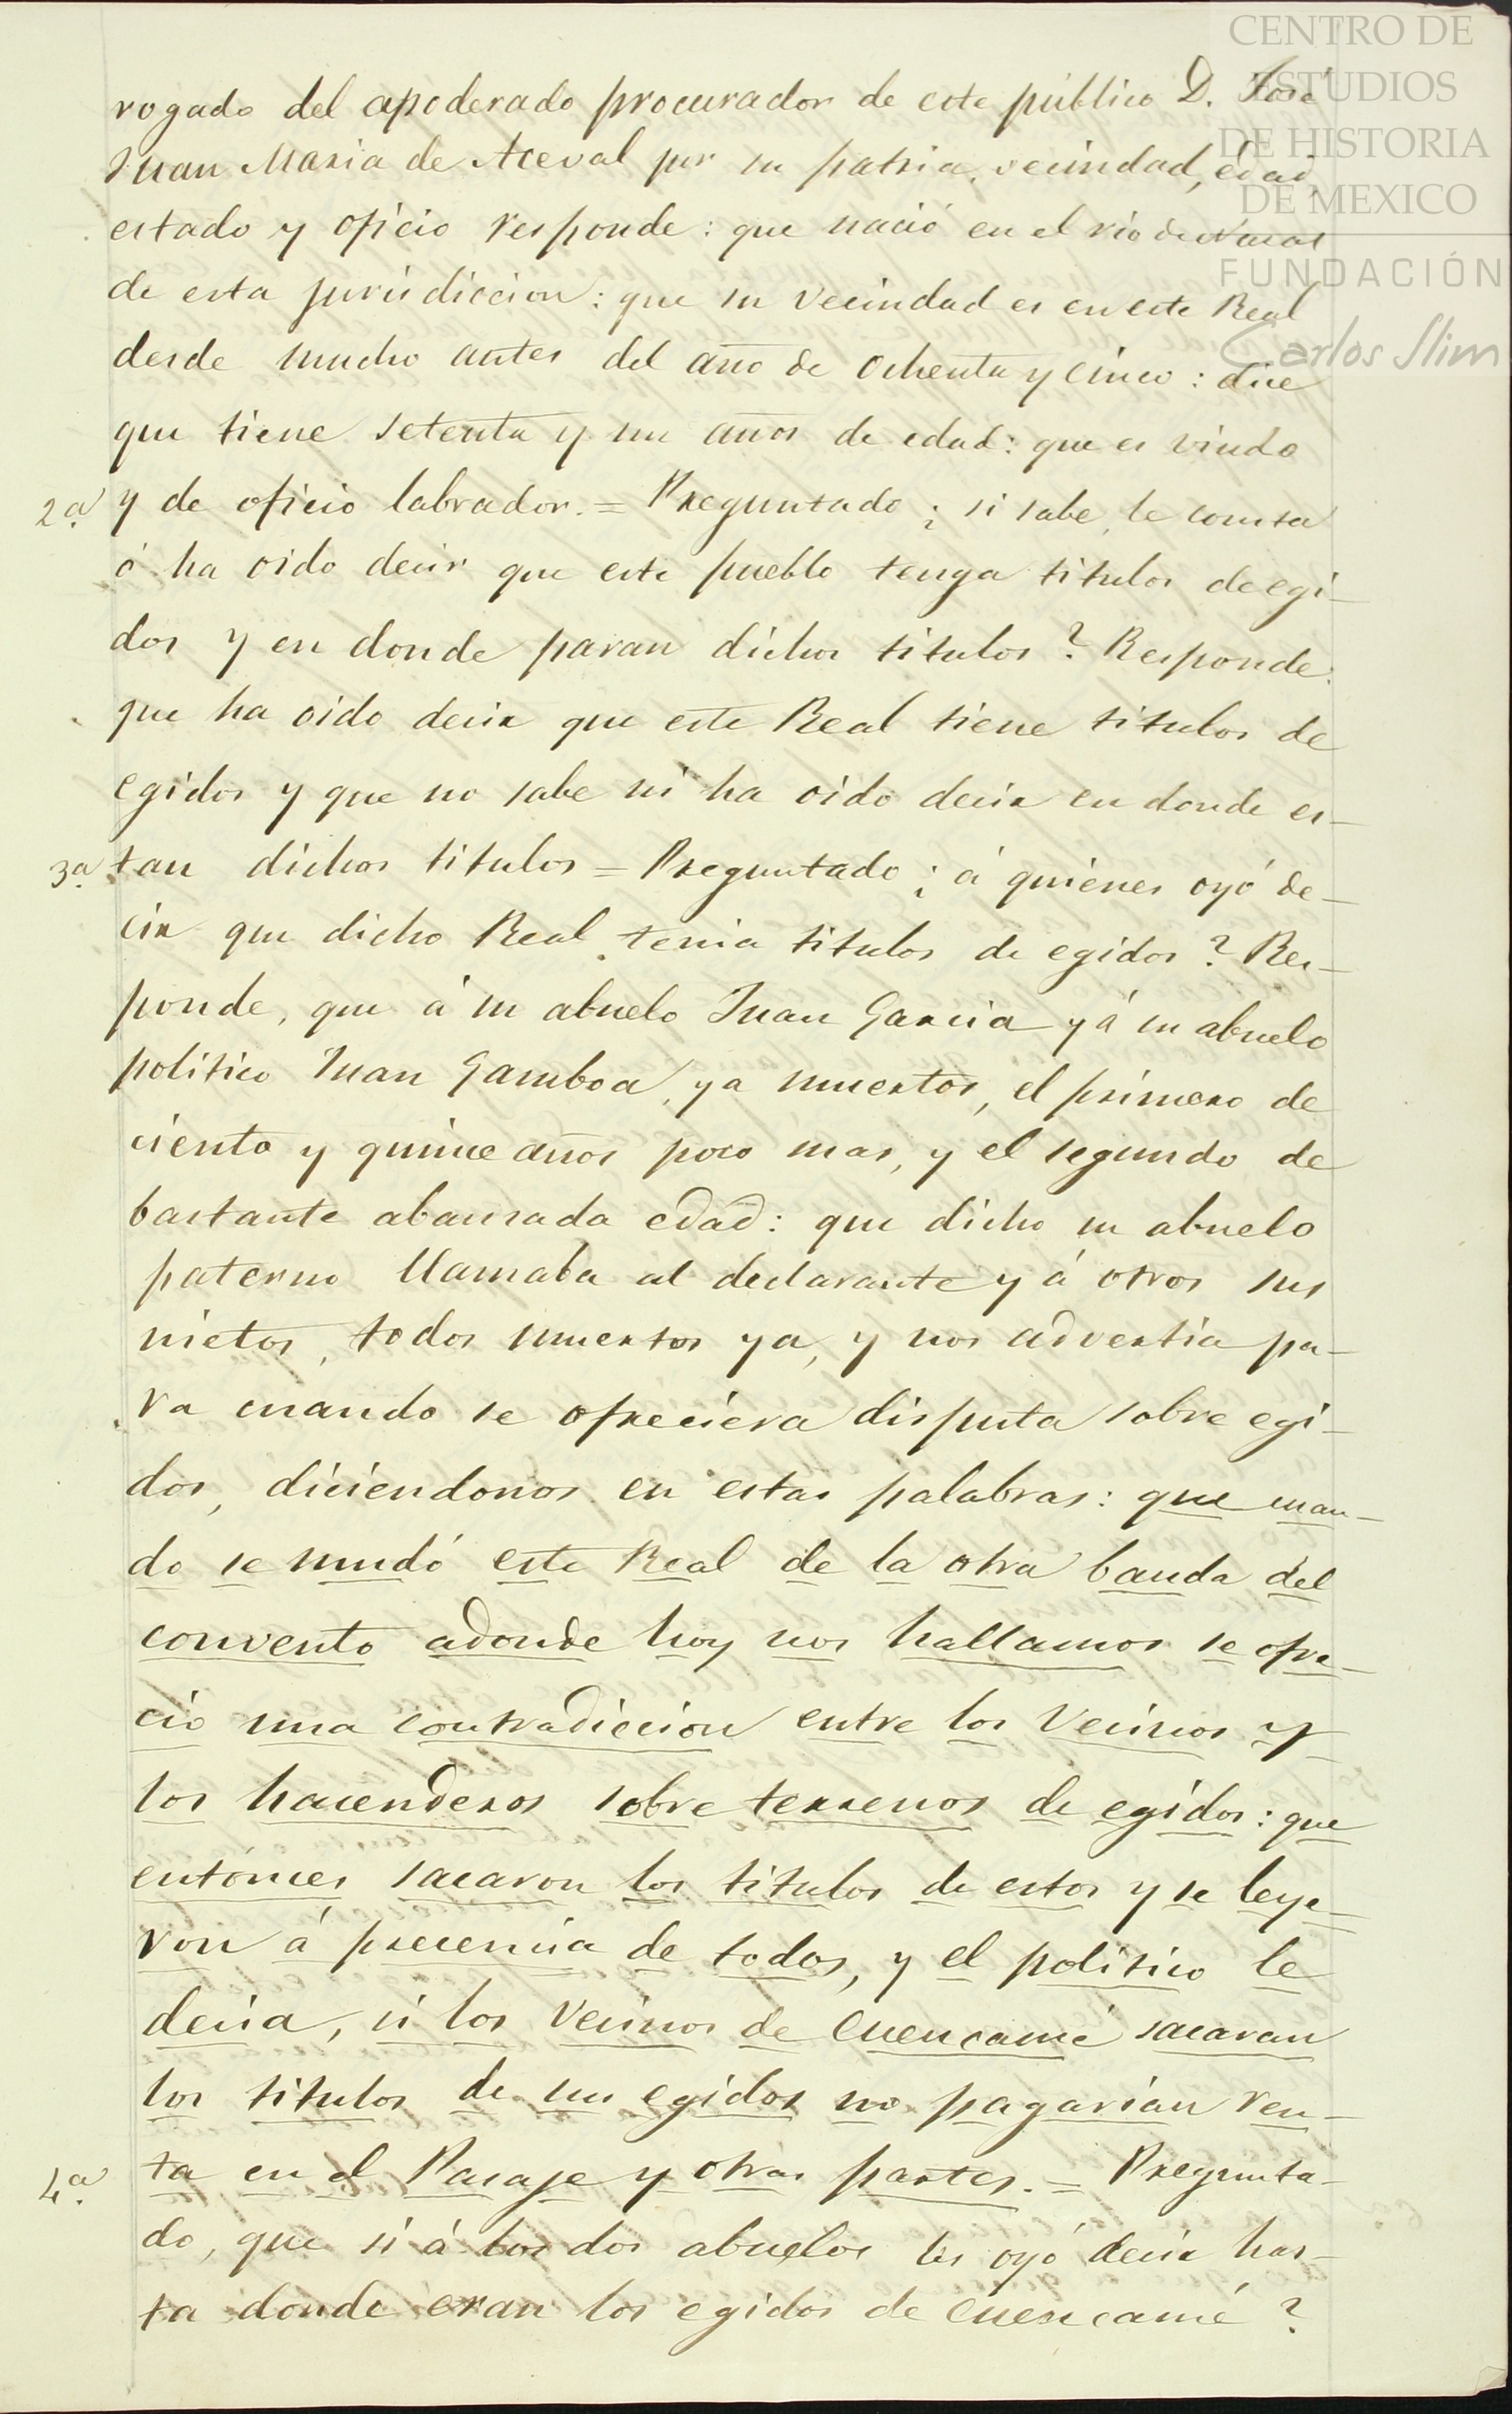 CENTRO DE
ESTUDIOS
DE HISTORIA
DE MEXICO
FUNDACIÓN
Carlos Slim
rogado del apoderado procurador de este público D. José
Juan Maria de Aceval por su patria, vecindad, edad,
estado y oficio responde: que nació en el rio de Nasas
de esta jurisdiccion: que su vecindad es en este Real
desde mucho antes del año de ochenta y cinco: dice
que tiene setenta y un años de edad: que es viudo
2.a y de oficio labrador. = Preguntado ¿ si sabe, le consta
ó ha oido decir que este pueblo tenga titulos de egi-
dos y en donde paran dichos titulos? Responde:
que ha oido decir que este Real tiene titulos de
egidos y que no sabe ni ha oido decir en donde es-
3.a tan dichos titulos = Preguntado ¿ á quienes oyó de-
cir que dicho Real tenia titulos de egidos? Res-
ponde, que á su abuelo Juan Garcia y á su abuelo
politico Juan Gamboa, ya muertos, el primero de
ciento y quince años poco mas, y el segundo de
bastante abansada edad: que dicho su abuelo
paterno llamaba al declarante y á otros sus
nietos, todos muertos ya, y nos advertia pa-
ra cuando se ofreciera disputa sobre egi-
dos, diciendonos en estas palabras: que cuan-
do se mudó este Real de la otra banda del
convento adonde hoy nos hallamos se ofre-
cio una contradiccion entre los vecinos y
los hacenderos sobre terrenos de egidos: que
entónces sacaron los titulos de estos y se leye-
ron á precencia de todos, y el politico le
decia, si los vecinos de Cuencamé sacaran
los titulos de sus egidos no pagarian ren-
4.a ta en el Pasaje y otras partes. = Pregunta-
do, que si á los dos abuelos les oyó decir has-
ta donde eran los egidos de Cuencamé?